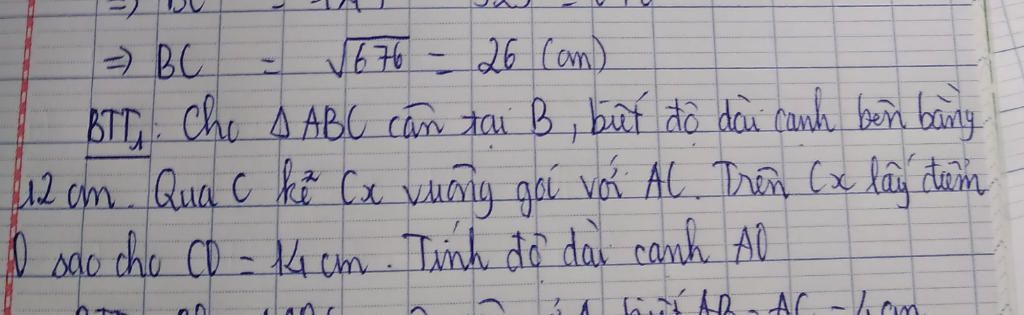 ⇒ BC
⇒ BC = √676 = 26 (cm)
BTT1: Cho Δ ABC cân tại B, biết độ dài cạnh bên bằng
12 cm. Qua C kẻ Cx vuông góc với AC. Trên Cx lấy điểm
D sao cho CD = 14 cm. Tính độ dài cạnh AD
biết AB = AC = 4 cm